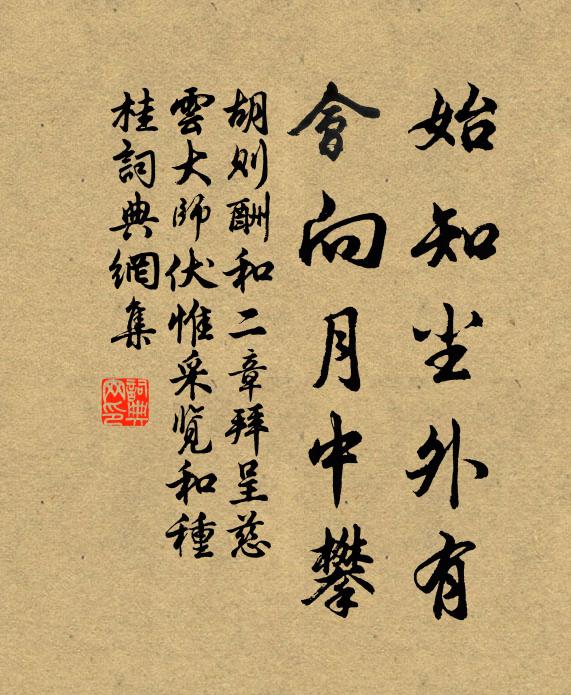 始知尘外有
會向月中攀
胡则酬和二章拜呈慈
雲大师伏惟采览和種
桂詞典網集
詞典网印